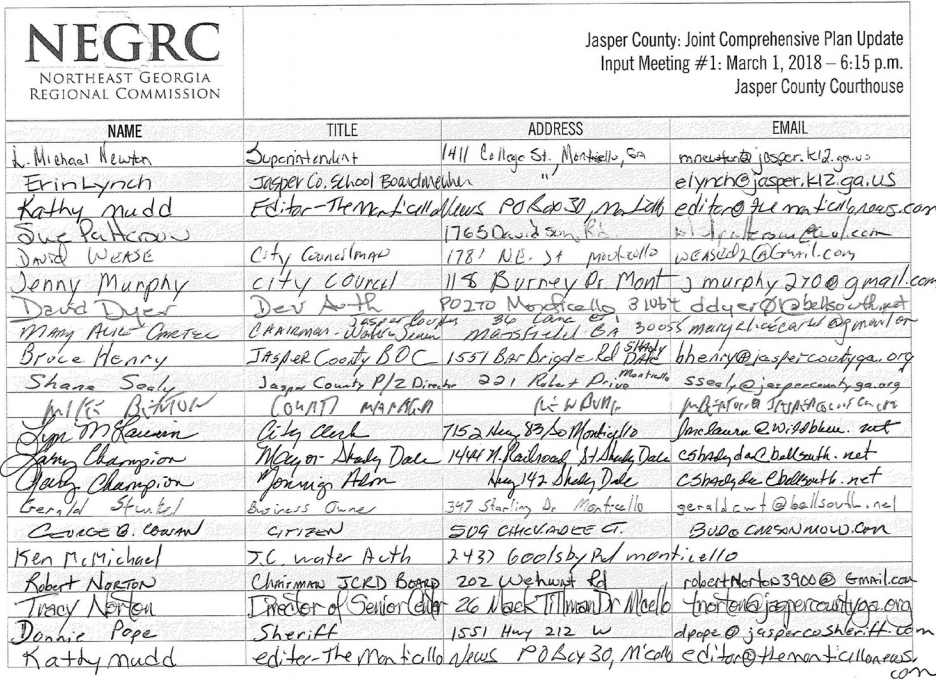 NEGRC
NORTHEAST GEORGIA
REGIONAL COMMISSION
Jasper County: Joint Comprehensive Plan Update
Input Meeting #1: March 1, 2018 – 6:15 p.m.
Jasper County Courthouse
NAME TITLE ADDRESS EMAIL
L. Michael Newton Superintendent 1411 College St, Monticello, GA mnewton@jasper.k12.ga.us
Erin Lynch Jasper Co. School Board Member " elynch@jasper.k12.ga.us
Kathy Mudd Editor-The Monticello News PO Box 30, Monticello editor@themonticellonews.com
Sue Patterson 1765 Davidson Rd.
DAVID WEASE City Councilman 178 N.E. St Monticello wease
Jenny Murphy city Council 118 Burney Dr Mont jmurphy270@gmail.com
David Dyer Dev Auth PO 270 Monticello 31064 ddyer01@bellsouth.net
MARY ALICE CARTER CHAIRMAN - Jasper County Water Mansfield GA 30055
Bruce Henry JASPER County BOC 1551 Bar Brigde Rd SHADY DALE bhenry@jaspercountyga.org
Shane Sealy Jasper County P/Z Director 221 Robert Drive Monticello ssealy@jaspercountyga.org
MIKE BENTON COUNTY MANAGER
City Clerk 7152 Hwy 83 So Monticello
Larry Champion Mayor - Shady Dale 1444 N. Railroad St Shady Dale cshadydal@bellsouth.net
Champion Hwy 142 Shady Dale cshadydal@bellsouth.net
Gerald Business Owner 397 Starling Dr Monticello geraldcwt@bellsouth.net
GEORGE B. COWAN CITIZEN 509 CHICKADEE CT. BUD@CARSONMOW.COM
Ken McMichael J.C. water Auth 2437 Goolsby Rd monticello
Robert NORTON Chairman JCRD BOARD 202 Wehunt Rd robertNorton3900@Gmail.com
Tracy Norton Director of Senior Center 26 Mack Tillman Dr M'cello tnorton@jaspercountyga.org
Donnie Pope Sheriff 1551 Hwy 212 W dpope@jaspercosheriff.com
Kathy Mudd editor-The Monticello News PO Box 30, M'cello editor@themonticellonews.com